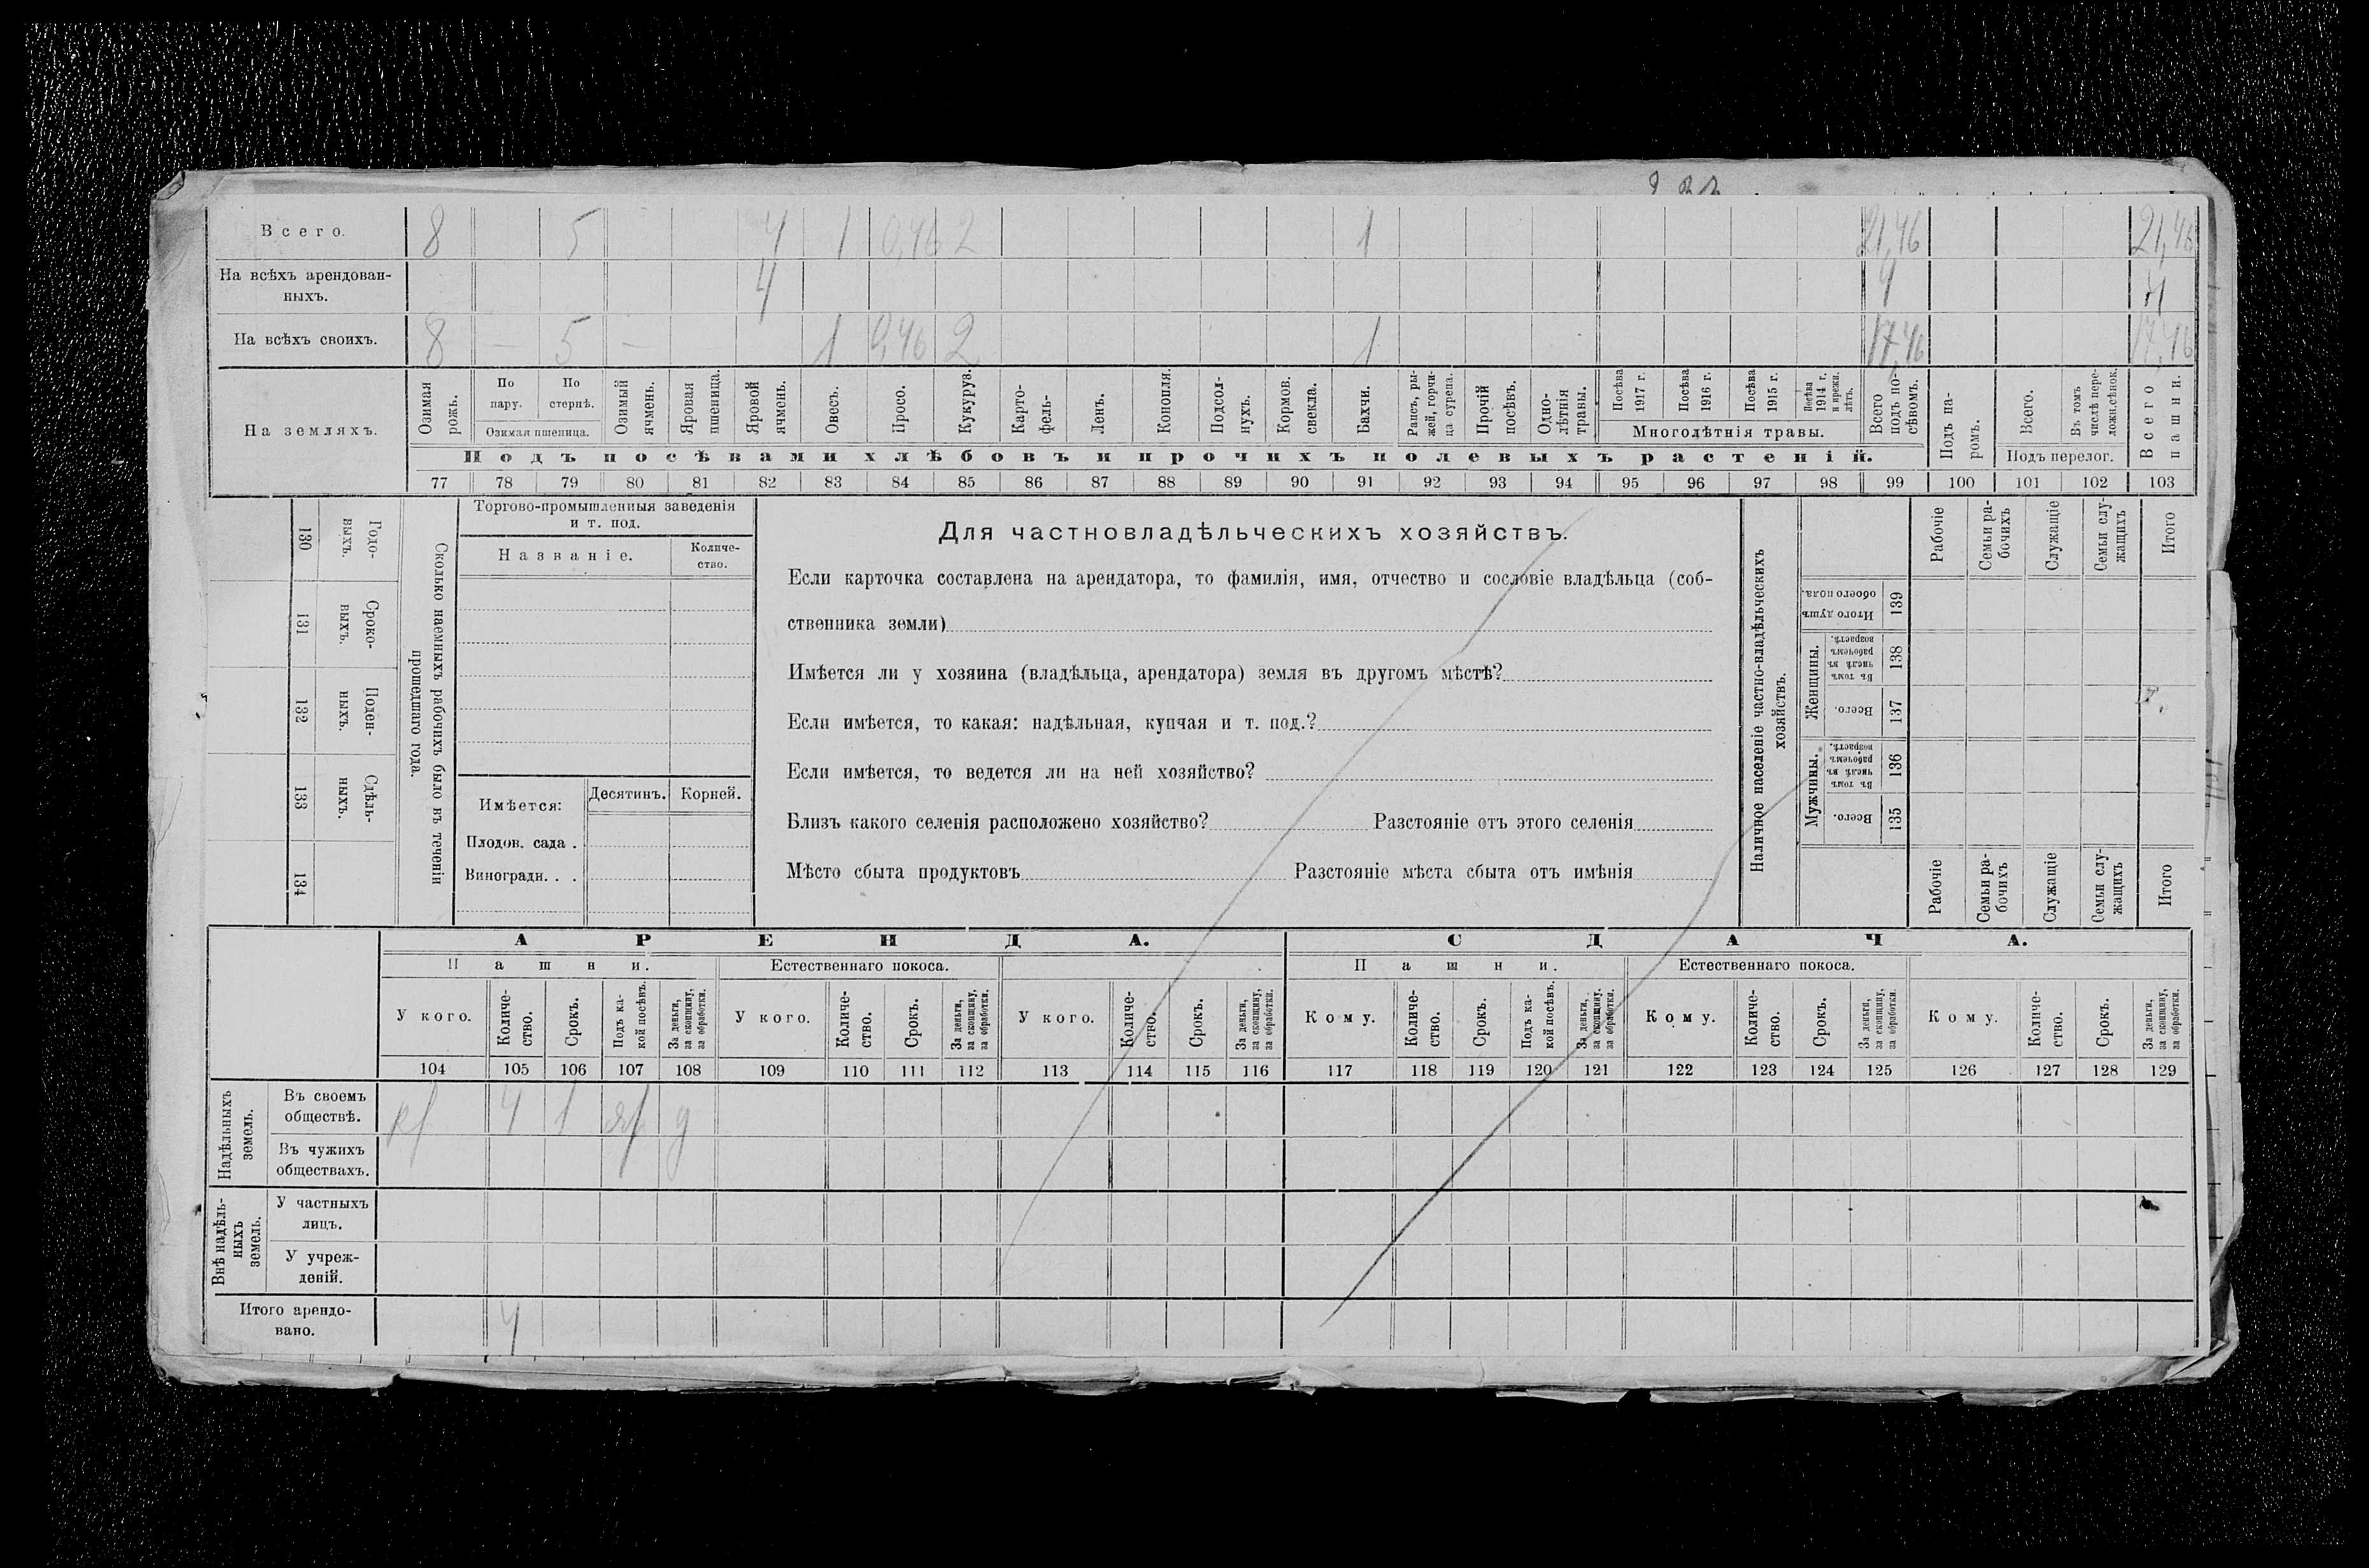 Всего. 8 5 4 1 0,46 2 1 21,46 21,46
На всѣхъ арендован-
ныхъ. 4 4 4
На всѣхъ своихъ. 8 — 5 — 1 0,46 2 1 17,46 17,46
На земляхъ.
Озимая рожь.
По пару.
По стернѣ.
Озимая пшеница.
Озимый ячмень.
Яровая пшеница.
Яровой ячмень.
Овесъ.
Просо.
Кукуруз.
Карто-
фель-
Ленъ.
Конопля.
Подсол-
нухъ.
Кормов. свекла.
Бахчи.
Рапсъ, ры-
жей, горчи-
ца сурепа.
Прочій посѣвъ.
Одно-
лѣтнія
травы.
Посѣва 1917 г.
Посѣва 1916 г.
Посѣва 1915 г.
Посѣва 1914 г. и прежн. лѣтъ.
Многолѣтнія травы.
Всего подъ по-
сѣвомъ.
Подъ па-
ромъ.
Всего.
Въ томъ числѣ пере-
ложн.сѣнок.
Подъ перелог.
Всего пашни.
Подъ посѣвами хлѣбовъ и прочихъ полевыхъ растеній.
77 78 79 80 81 82 83 84 85 86 87 88 89 90 91 92 93 94 95 96 97 98 99 100 101 102 103
Годо-
выхъ.
130
Сроко-
выхъ.
131
Поден-
ныхъ.
132
Сдѣль-
ныхъ.
133
134
Сколько наемныхъ рабочихъ было въ теченіи
прошедшаго года.
Торгово-промышленныя заведенія
и т. под.
Названіе.
Количе-
ство.
Имѣется:
Десятинъ.
Корней.
Плодов. сада .
Виноградн. . .
Для частновладѣльческихъ хозяйствъ.
Если карточка составлена на арендатора, то фамилія, имя, отчество и сословіе владѣльца (соб-
ственника земли)
Имѣется ли у хозяина (владѣльца, арендатора) земля въ другомъ мѣстѣ?
Если имѣется, то какая: надѣльная, купчая и т. под.?
Если имѣется, то ведется ли на ней хозяйство?
Близъ какого селенія расположено хозяйство? Разстояніе отъ этого селенія
Мѣсто сбыта продуктовъ Разстояніе мѣста сбыта отъ имѣнія
Наличное населеніе частно-владѣльческихъ
хозяйствъ.
Рабочіе
Семьи ра-
бочихъ
Служащіе
Семьи слу-
жащихъ
Итого
Итого душъ
обоего пола.
139
Женщины.
Въ томъ числѣ въ рабочемъ возрастѣ.
138
Всего.
137
Мужчины.
Въ томъ числѣ въ рабочемъ возрастѣ.
136
Всего.
135
Рабочіе
Семьи ра-
бочихъ
Служащіе
Семьи слу-
жащихъ
Итого
АРЕНДА. СДАЧА.
Пашни. Естественнаго покоса. Пашни. Естественнаго покоса.
У кого.
Количе-
ство.
Срокъ.
Подъ ка-
кой посѣвъ.
За деньги,
за скопщину,
за обработки.
У кого.
Количе-
ство.
Срокъ.
За деньги,
за скопщину,
за обработки.
У кого.
Количе-
ство.
Срокъ.
За деньги,
за скопщину,
за обработки.
Кому.
Количе-
ство.
Срокъ.
Подъ ка-
кой посѣвъ.
За деньги,
за скопщину,
за обработки.
Кому.
Количе-
ство.
Срокъ.
За деньги,
за скопщину,
за обработки.
Кому.
Количе-
ство.
Срокъ.
За деньги,
за скопщину,
за обработки.
104 105 106 107 108 109 110 111 112 113 114 115 116 117 118 119 120 121 122 123 124 125 126 127 128 129
Надѣльныхъ
земель.
Въ своемъ
обществѣ. 4 1 д
Въ чужихъ
обществахъ.
Внѣ надѣль-
ныхъ
земель.
У частныхъ
лицъ.
У учреж-
деній.
Итого арендо-
вано. 4